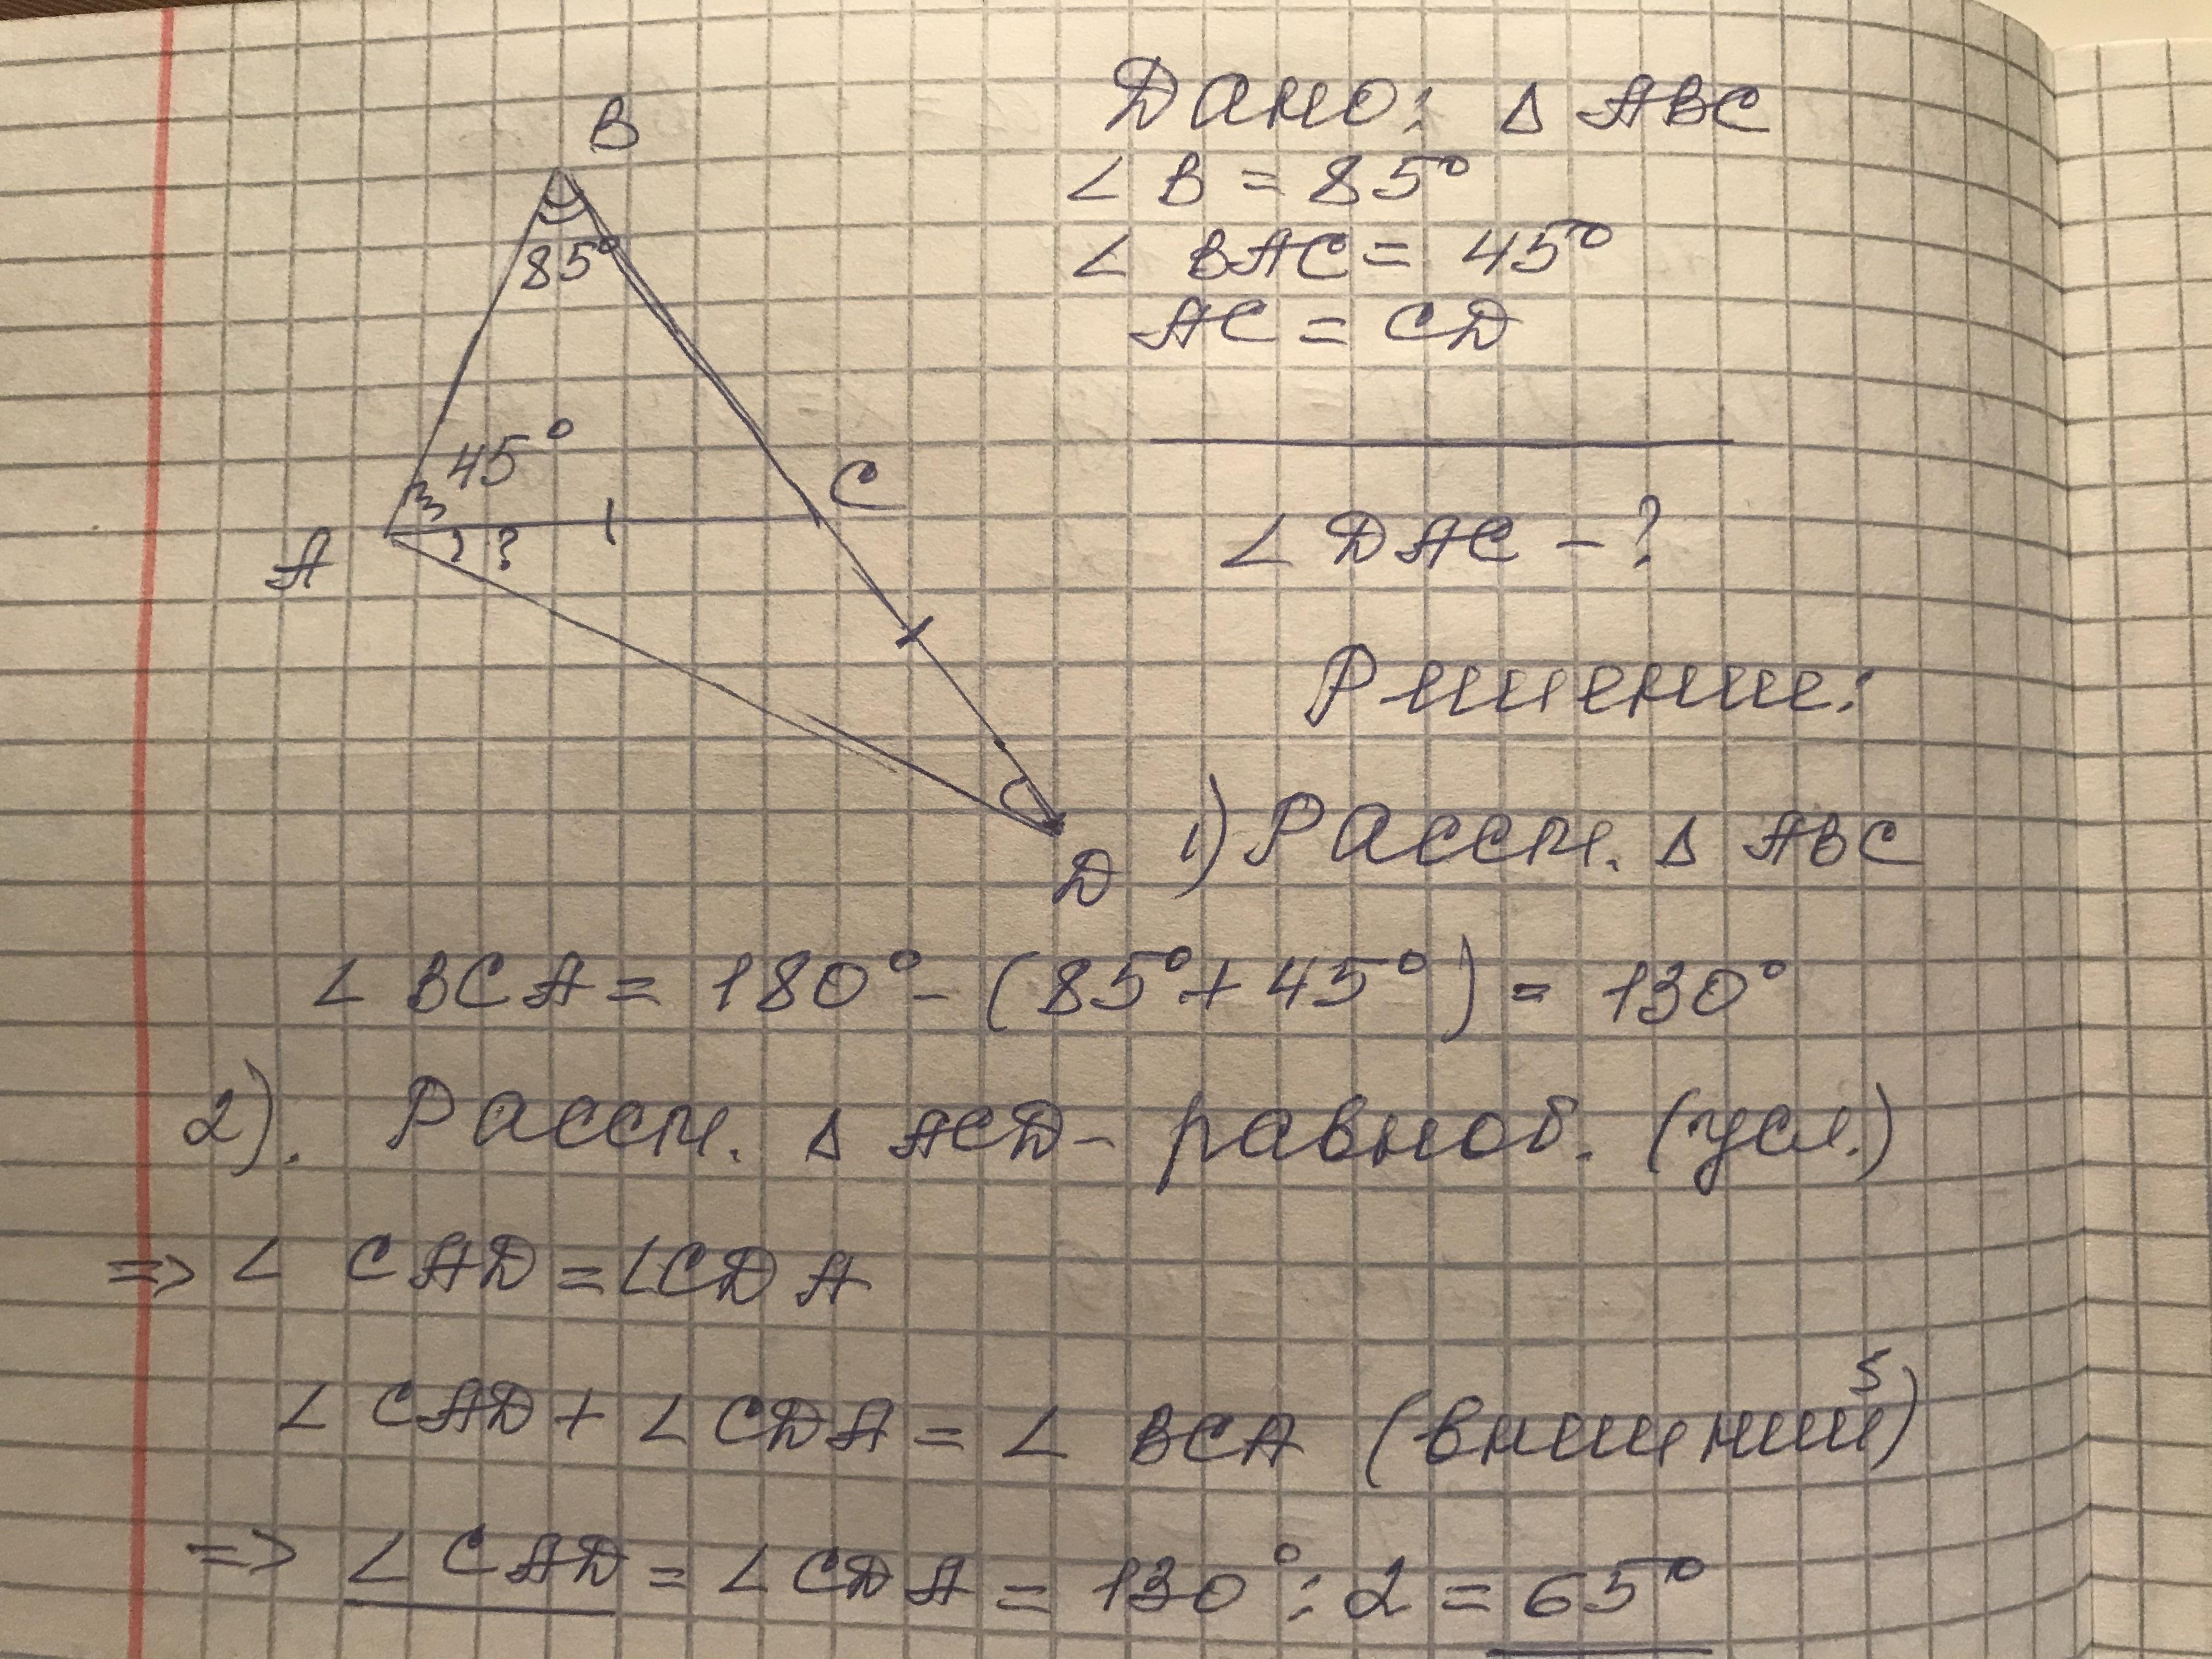 B
85°
45°
C
A
?
D
Дано: Δ ABC
∠ B = 85°
∠ BAC = 45°
AC = CD
∠ DAC - ?
Решение:
1) Рассм. Δ ABC
∠ BCA = 180° - (85° + 45°) = 130°
2). Рассм. Δ ACD - равноб. (усл.)
=> ∠ CAD = ∠CDA
∠ CAD + ∠ CDA = ∠ BCA (внешний)
=> ∠ CAD = ∠ CDA = 130° : 2 = 65°